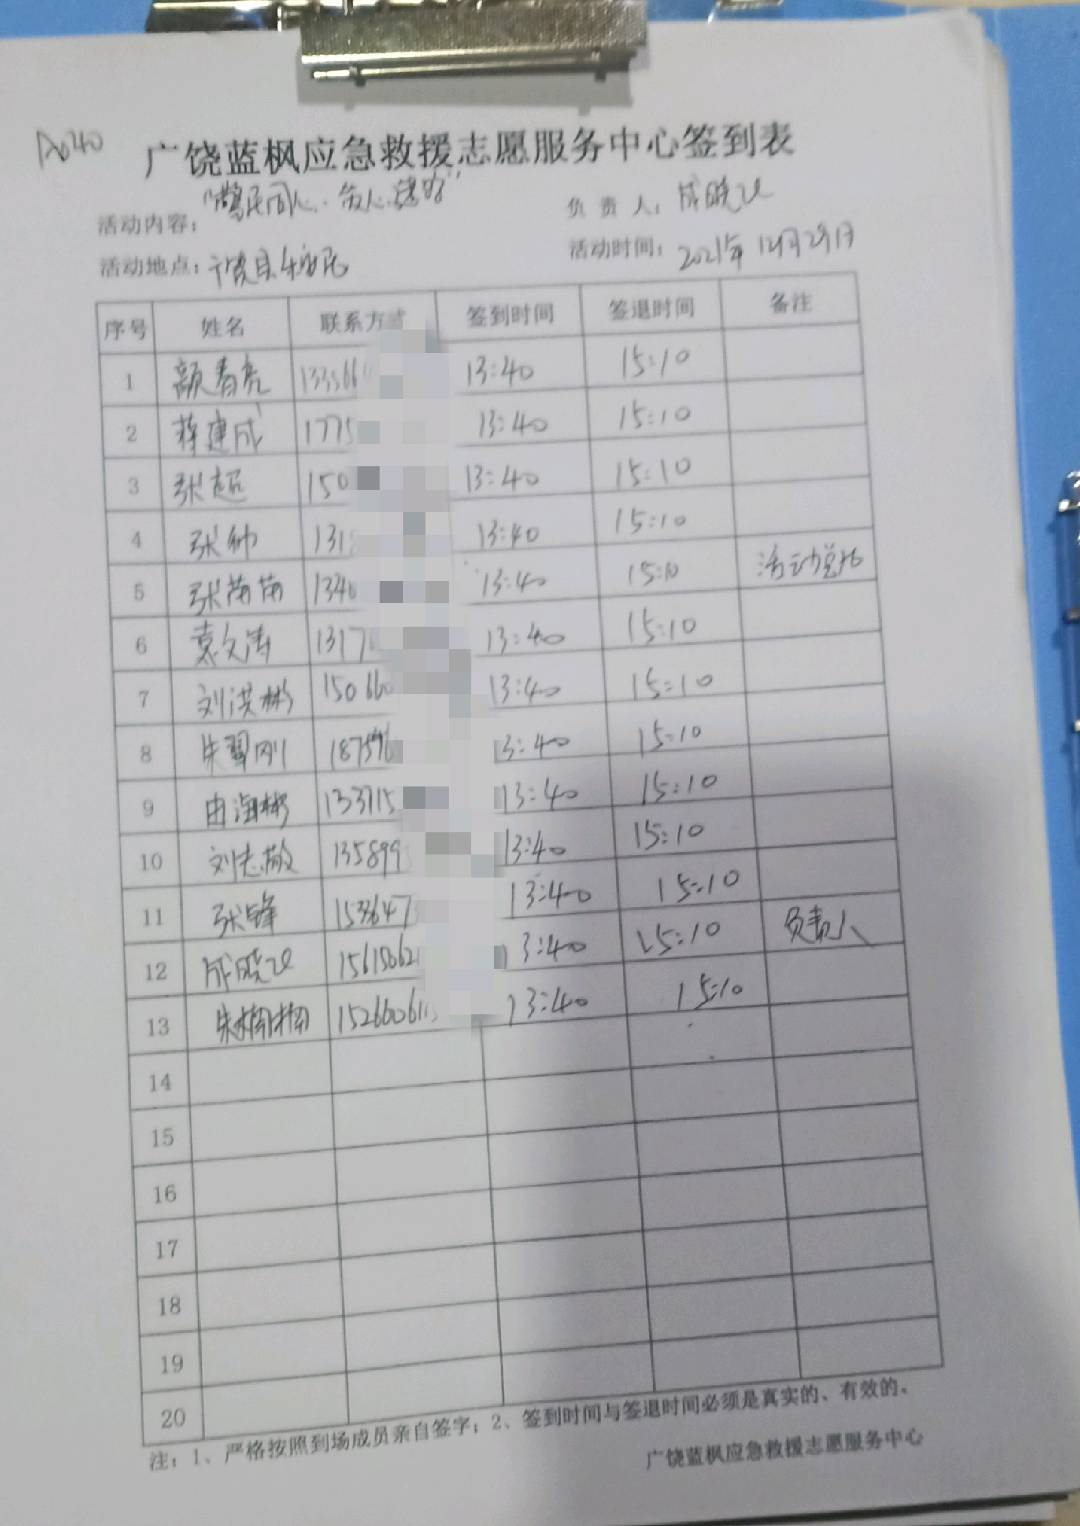 A040
广饶蓝枫应急救援志愿服务中心签到表
活动内容：
负责人：成晓
活动时间：2021年12月29日
活动地点：广饶县
序号 姓名 联系方式 签到时间 签退时间 备注
1 颜春亮 133366 13:40 15:10
2 蒋建成 1775 13:40 15:10
3 张超 150 13:40 15:10
4 张帅 131 13:40 15:10
5 张苗苗 1340 13:40 15:10 活动
6 袁文涛 1317 13:40 15:10
7 刘洪彬 150660 13:40 15:10
8 朱翠刚 187596 13:40 15:10
9 由海彬 133715 13:40 15:10
10 刘志敏 135899 13:40 15:10
11 张锋 1533647 13:40 15:10
12 成晓 15615062 13:40 15:10 负责人
13 朱楠楠 15266061 13:40 15:10
14
15
16
17
18
19
20
注：1、严格按照到场成员亲自签字；2、签到时间与签退时间必须是真实的、有效的。
广饶蓝枫应急救援志愿服务中心